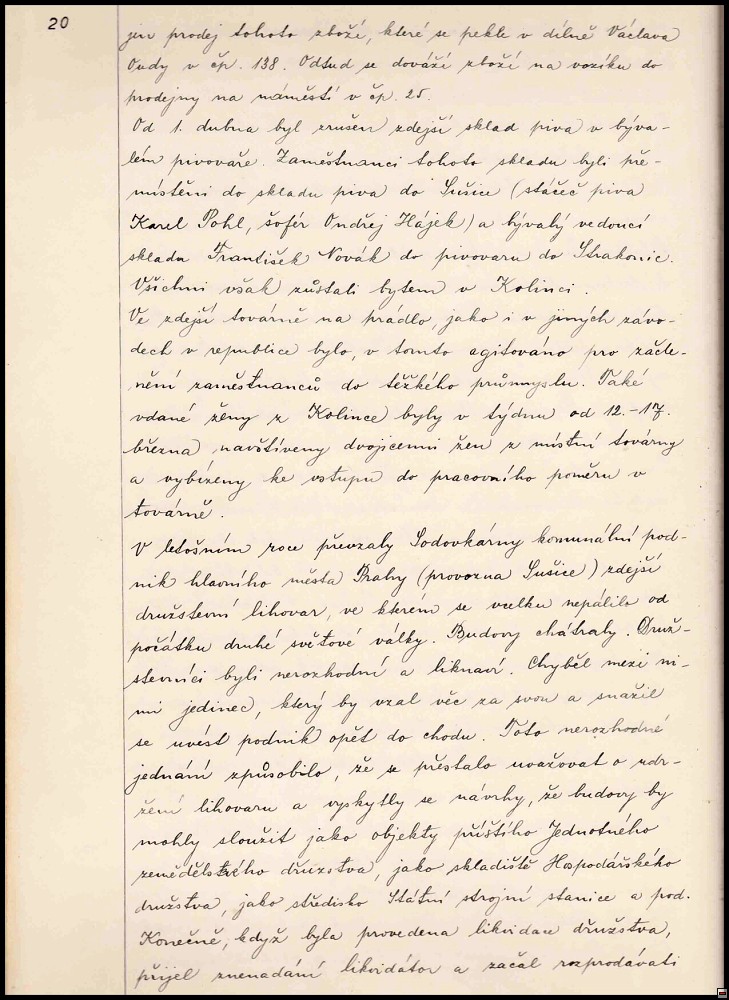 20
jen prodej tohoto zboží, které se pekle v dílně Václava
Oudy v čp. 138. Odtud se dováží zboží na vozíku do
prodejny na náměstí v čp. 25.
Od 1. dubna byl zrušen zdejší sklad piva v býva-
lém pivovaře. Zaměstnanci tohoto skladu byli pře-
místěni do skladu piva do Sušice (stáčeč piva
Karel Pohl, šofér Ondřej Hájek) a bývalý vedoucí
skladu František Novák do pivovaru do Strakonic.
Všichni však zůstali bytem v Kolinci.
Ve zdejší továrně na prádlo, jako i v jiných závo-
dech v republice bylo, v tomto agitováno pro začle-
nění zaměstnanců do těžkého průmyslu. Také
vdané ženy z Kolince byly v týdnu od 12.-17.
března navštíveny dvojicemi žen z místní továrny
a vybízeny ke vstupu do pracovního poměru v
továrně.
V letošním roce převzaly Sodovkárny komunální pod-
nik hlavního města Prahy (provozna Sušice) zdejší
družstevní lihovar, ve kterém se vcelku nepálilo od
počátku druhé světové války. Budovy chátraly. Druž-
stevníci byli nerozhodní a liknaví. Chyběl mezi ni-
mi jedinec, který by vzal věc za svou a snažil
se uvést podnik opět do chodu. Toto nerozhodné
jednání způsobilo, že se přestalo uvažovat o udr-
žení lihovaru a vyskytly se návrhy, že budovy by
mohly sloužit jako objekty příštího Jednotného
zemědělského družstva, jako skladiště Hospodářského
družstva, jako středisko Státní strojní stanice a pod.
Konečně, když byla provedena likvidace družstva,
přijel znenadání likvidátor a začal rozprodávati